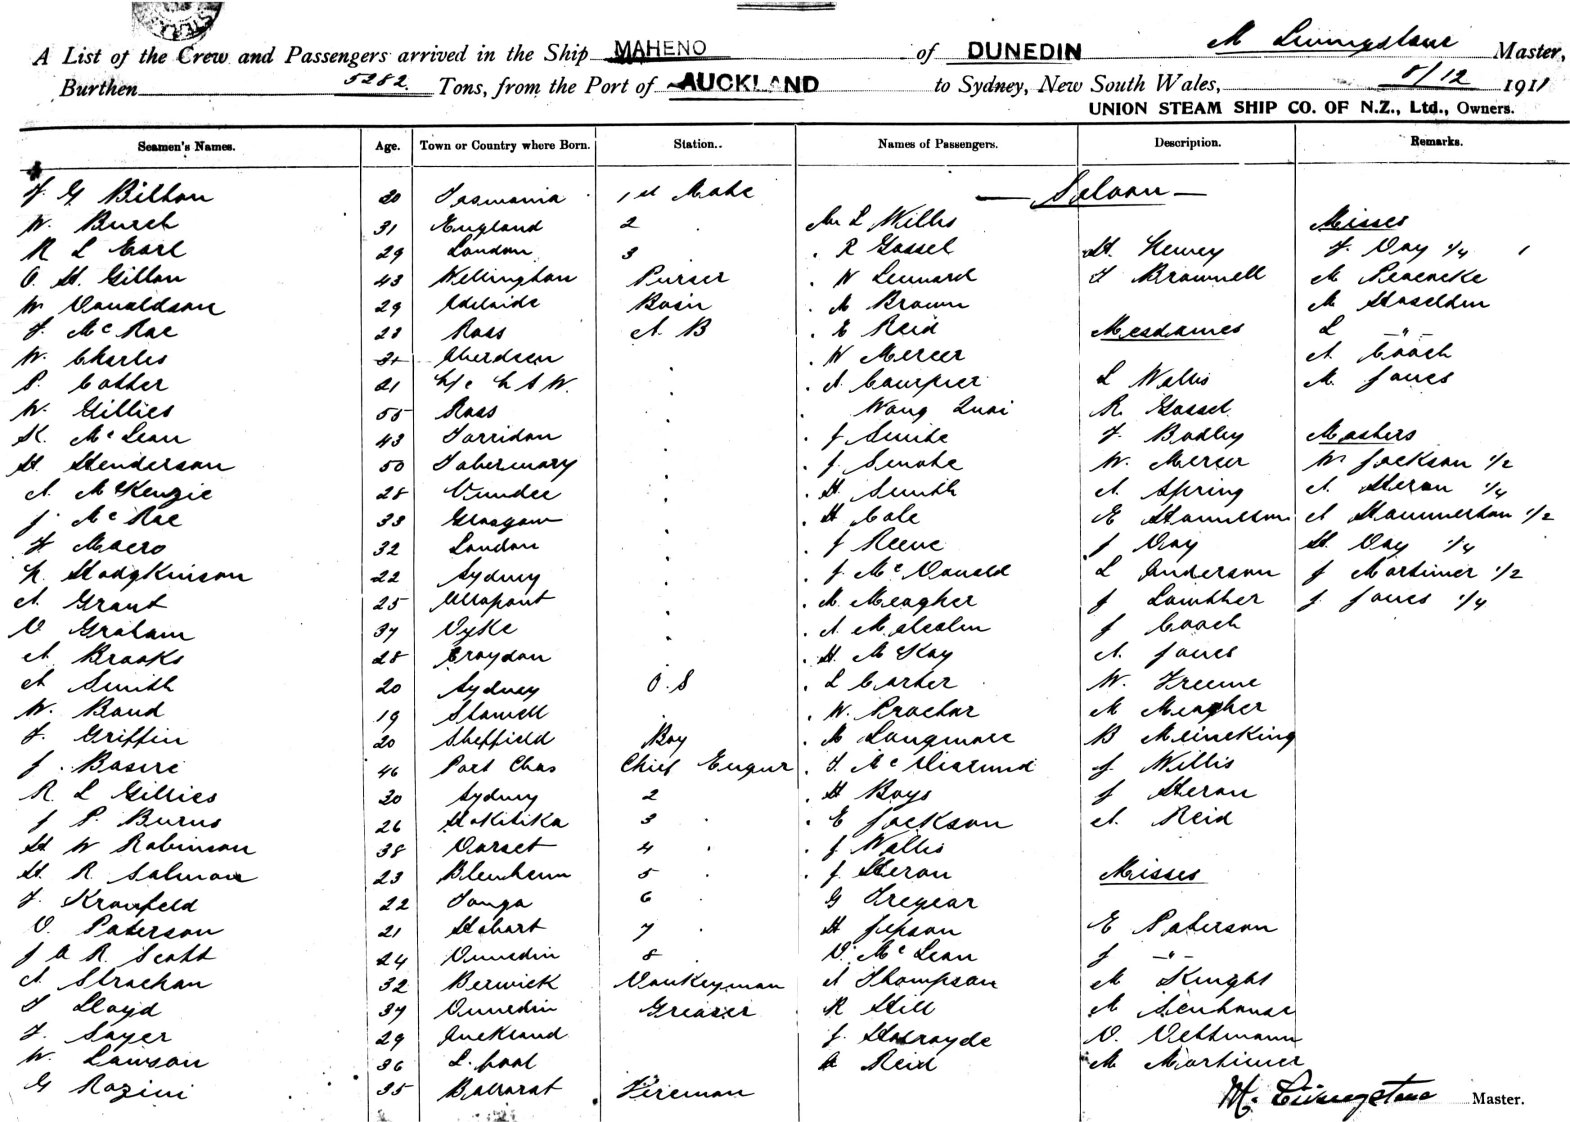 A List of the Crew and Passengers arrived in the Ship MAHENO of DUNEDIN M Livingstone Master,
Burthen 5282 Tons, from the Port of AUCKLAND to Sydney, New South Wales, 8/12 1911
UNION STEAM SHIP CO. OF N.Z., Ltd., Owners.
Seamen's Names. Age. Town or Country where Born. Station.. Names of Passengers. Description. Remarks.
F G Bilton 30 Tasmania 1st Mate — Saloon —
W. Burch 31 England 2 Mr L Willis Misses
R L Earl 29 London 3 . R Gossel H. Hewey F Day 1/4
O. H. Gillon 43 Wellington Purser . W Lennard T Brownell M Peacocke
W Donaldson 29 Adelaide Bosn . A Brown M Haselden
F. McRae 23 Ross A B . E Reid Mesdames L — " —
W. Charles 31 Aberdeen . W Mercer A Cooch
P. Cother 21 N S W. . A L Wallis M. Jones
W. Gillies 55 Ross Wong Quoi R. Gossel
K. McLean 43 Torridon . J Smith F Badley Masters
H Henderson 50 Tobermory . J. W. Mercer W Jackson 1/2
A. McKenzie 28 Dundee . H Smith A. Spring A. Heron 1/4
J McRae 33 Glasgow . H Cole E A Hammerton 1/2
F Macro 32 London . J Reeve J Day H. Day 1/4
N. Hodgkinson 22 Sydney . J McDonald L Anderson J Mortimer 1/2
A Grant 25 Ullapool . M. Meagher J Lowther J. Jones 1/4
D Graham 37 Dyke . A Malcolm J Cooch
A Brooks 28 Croydon . H McKay A. Jones
A Smith 20 Sydney O.S . L Carter W. Freeme
W. Bond 19 Stawell . W. Proctor M Meagher
F. Griffin 20 Sheffield Boy . A Longmore B Meineking
J. Basire 46 Port Chas Chief Engnr . J Willis
R. L Gillies 30 Sydney 2 . H Boys J Heron
J P. Burns 26 Hokitika 3 . . E Jackson A. Reid
H W Robinson 38 Dorset 4 . . J Wallis
H. R. Salmon 23 Blenheim 5 . . J Heron Misses
F. Kronfeld 22 Tonga 6 . G Tregear
D. Paterson 21 Hobart 7 . H Jepson E Paterson
J A R. Scott 24 Dunedin 8 D. McLean J — " —
A. Strachan 32 Berwick Donkeyman A Thompson M Knight
T Lloyd 37 Dunedin Greaser R Hill A Senhouse
F. Sayer 29 Auckland J. Holroyde D. Dettmann
W. Lawson 36 L.pool A Reid M Mortimer
G Rozini 35 Ballarat Fireman M. Livingstone Master.